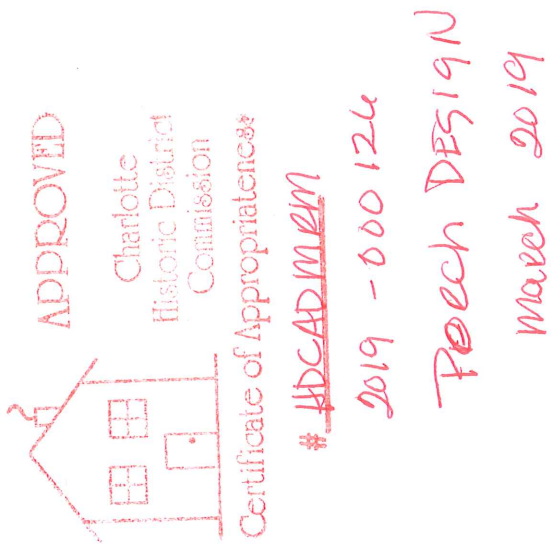 APPROVED
Charlotte
Historic District
Commission
Certificate of Appropriateness
# HDCADMRM
2019 - 000126
PORCH DESIGN
March 2019